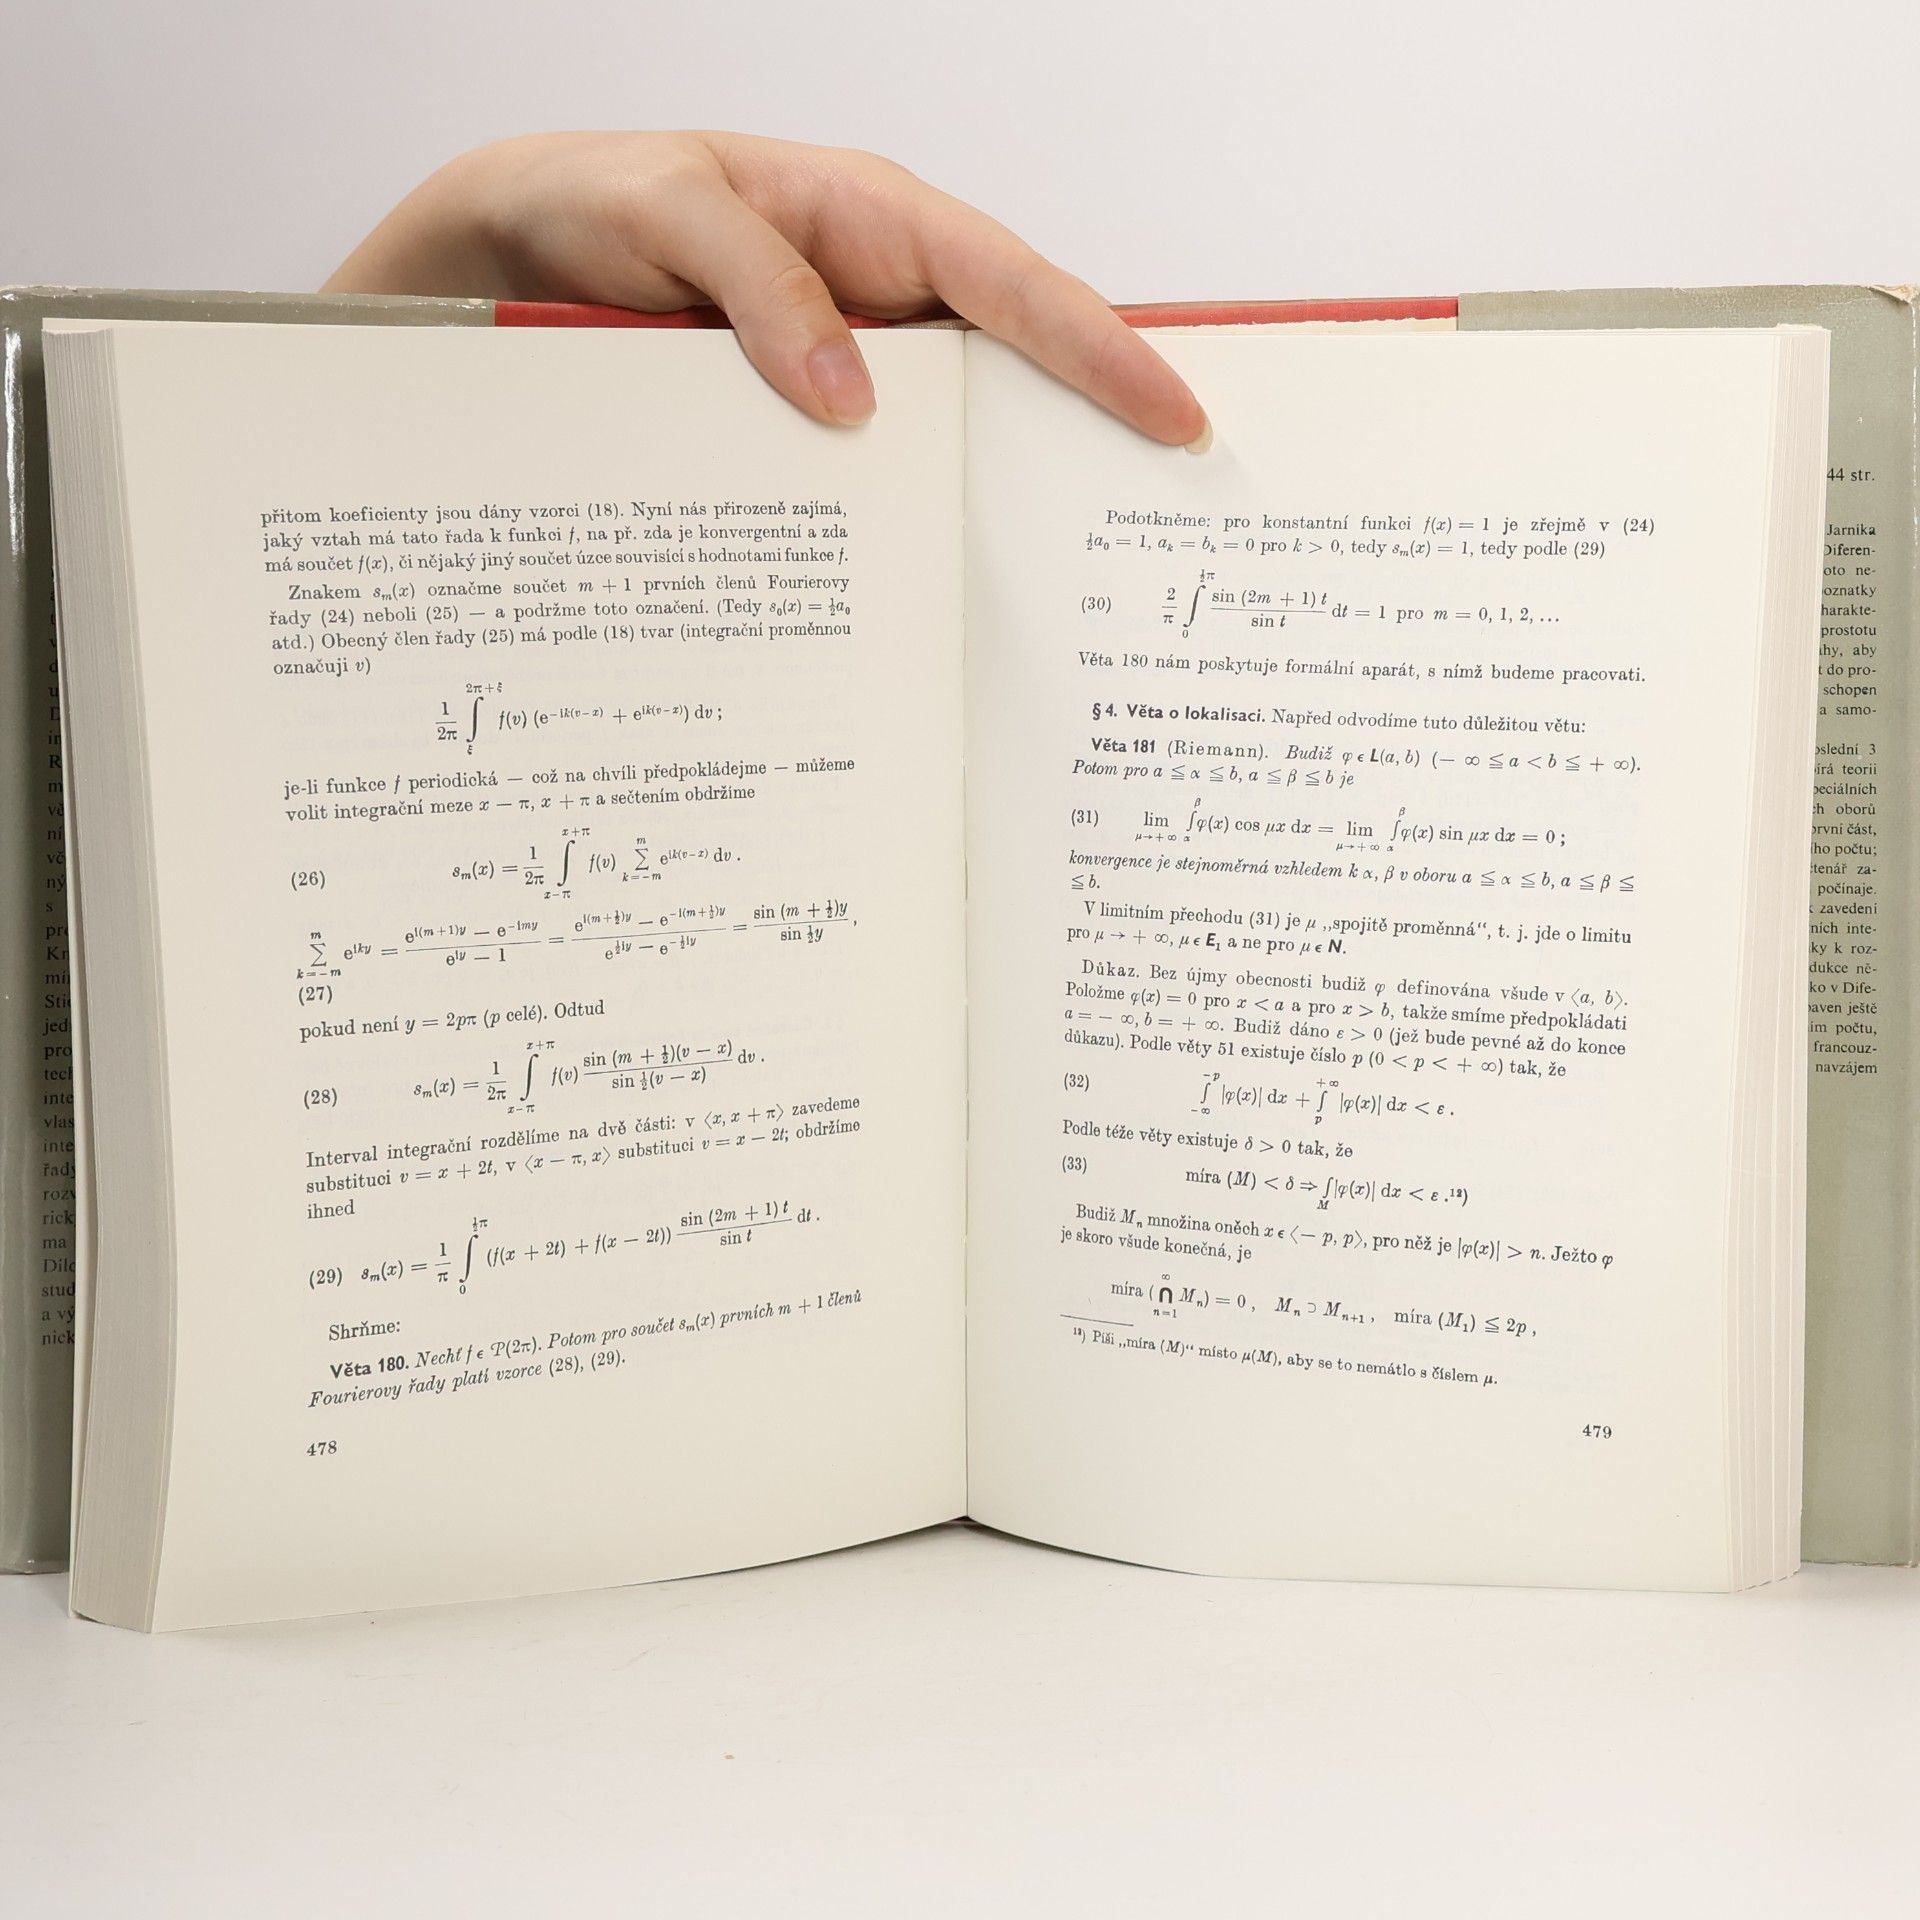 přitom koeficienty jsou dány vzorci (18). Nyní nás přirozeně zajímá,
jaký vztah má tato řada k funkci f, na př. zda je konvergentní a zda
má součet f(x), či nějaký jiný součet úzce souvisící s hodnotami funkce f.
Znakem s_m(x) označme součet m + 1 prvních členů Fourierovy
řady (24) neboli (25) — a podržme toto označení. (Tedy s_0(x) = ½a_0
atd.) Obecný člen řady (25) má podle (18) tvar (integrační proměnnou
označuji v)
1/2π ∫_ξ^{2π+ξ} f(v) (e^{-ik(v-x)} + e^{ik(v-x)}) dv ;
je-li funkce f periodická — což na chvíli předpokládejme — můžeme
volit integrační meze x — π, x + π a sečtením obdržíme
(26) s_m(x) = 1/2π ∫_{x-π}^{x+π} f(v) ∑_{k=-m}^{m} e^{ik(v-x)} dv .
∑_{k=-m}^{m} e^{iky} = (e^{i(m+1)y} — e^{-imy})/(e^{iy} — 1) = (e^{i(m+½)y} — e^{-i(m+½)y})/(e^{½iy} — e^{-½iy}) = sin (m + ½)y / sin ½y ,
(27)
pokud není y = 2pπ (p celé). Odtud
(28) s_m(x) = 1/2π ∫_{x-π}^{x+π} f(v) sin (m + ½)(v — x) / sin ½(v — x) dv .
Interval integrační rozdělíme na dvě části: v ⟨x, x + π⟩ zavedeme
substituci v = x + 2t, v ⟨x — π, x⟩ substituci v = x — 2t; obdržíme
ihned
(29) s_m(x) = 1/π ∫_0^{½π} (f(x + 2t) + f(x — 2t)) sin (2m + 1) t / sin t dt .
Shrňme:
Věta 180. Nechť f ϵ P(2π). Potom pro součet s_m(x) prvních m + 1 členů
Fourierovy řady platí vzorce (28), (29).
478
Podotkněme: pro konstantní funkci f(x) = 1 je zřejmě v (24)
½a_0 = 1, a_k = b_k = 0 pro k > 0, tedy s_m(x) = 1, tedy podle (29)
(30) 2/π ∫_0^{½π} sin (2m + 1) t / sin t dt = 1 pro m = 0, 1, 2, ...
Věta 180 nám poskytuje formální aparát, s nímž budeme pracovati.
§ 4. Věta o lokalisaci. Napřed odvodíme tuto důležitou větu:
Věta 181 (Riemann). Budiž φ ϵ L(a, b) (— ∞ ≦ a < b ≦ + ∞).
Potom pro a ≦ α ≦ b, a ≦ β ≦ b je
(31) lim_{μ→+∞} ∫_α^β φ(x) cos μx dx = lim_{μ→+∞} ∫_α^β φ(x) sin μx dx = 0 ;
konvergence je stejnoměrná vzhledem k α, β v oboru a ≦ α ≦ b, a ≦ β ≦
≦ b.
V limitním přechodu (31) je μ „spojitě proměnná“, t. j. jde o limitu
pro μ → + ∞, μ ϵ E_1 a ne pro μ ϵ N.
Důkaz. Bez újmy obecnosti budiž φ definována všude v ⟨a, b⟩.
Položme φ(x) = 0 pro x < a a pro x > b, takže smíme předpokládati
a = — ∞, b = + ∞. Budiž dáno ε > 0 (jež bude pevné až do konce
důkazu). Podle věty 51 existuje číslo p (0 < p < + ∞) tak, že
(32) ∫_{-∞}^{-p} |φ(x)| dx + ∫_p^{+∞} |φ(x)| dx < ε .
Podle téže věty existuje δ > 0 tak, že
(33) míra (M) < δ ⇒ ∫_M |φ(x)| dx < ε .¹²)
Budiž M_n množina oněch x ϵ ⟨— p, p⟩, pro něž je |φ(x)| > n. Ježto φ
je skoro všude konečná, je
míra (⋂_{n=1}^{∞} M_n) = 0 , M_n ⊃ M_{n+1} , míra (M_1) ≦ 2p ,
¹²) Píši „míra (M)“ místo μ(M), aby se to nemátlo s číslem μ.
479
44 str.
Jarníka
Diferen-
oto ne-
oznatky
harakte-
prostotu
hy, aby
t do pro-
schopen
a samo-
oslední 3
írá teorii
peciálních
ch oborů
první část,
ho počtu;
čtenář za-
počínaje.
k zavedení
ních inte-
ky k roz-
dukce ně-
ko v Dife-
paven ještě
ím počtu,
francouz-
navzájem